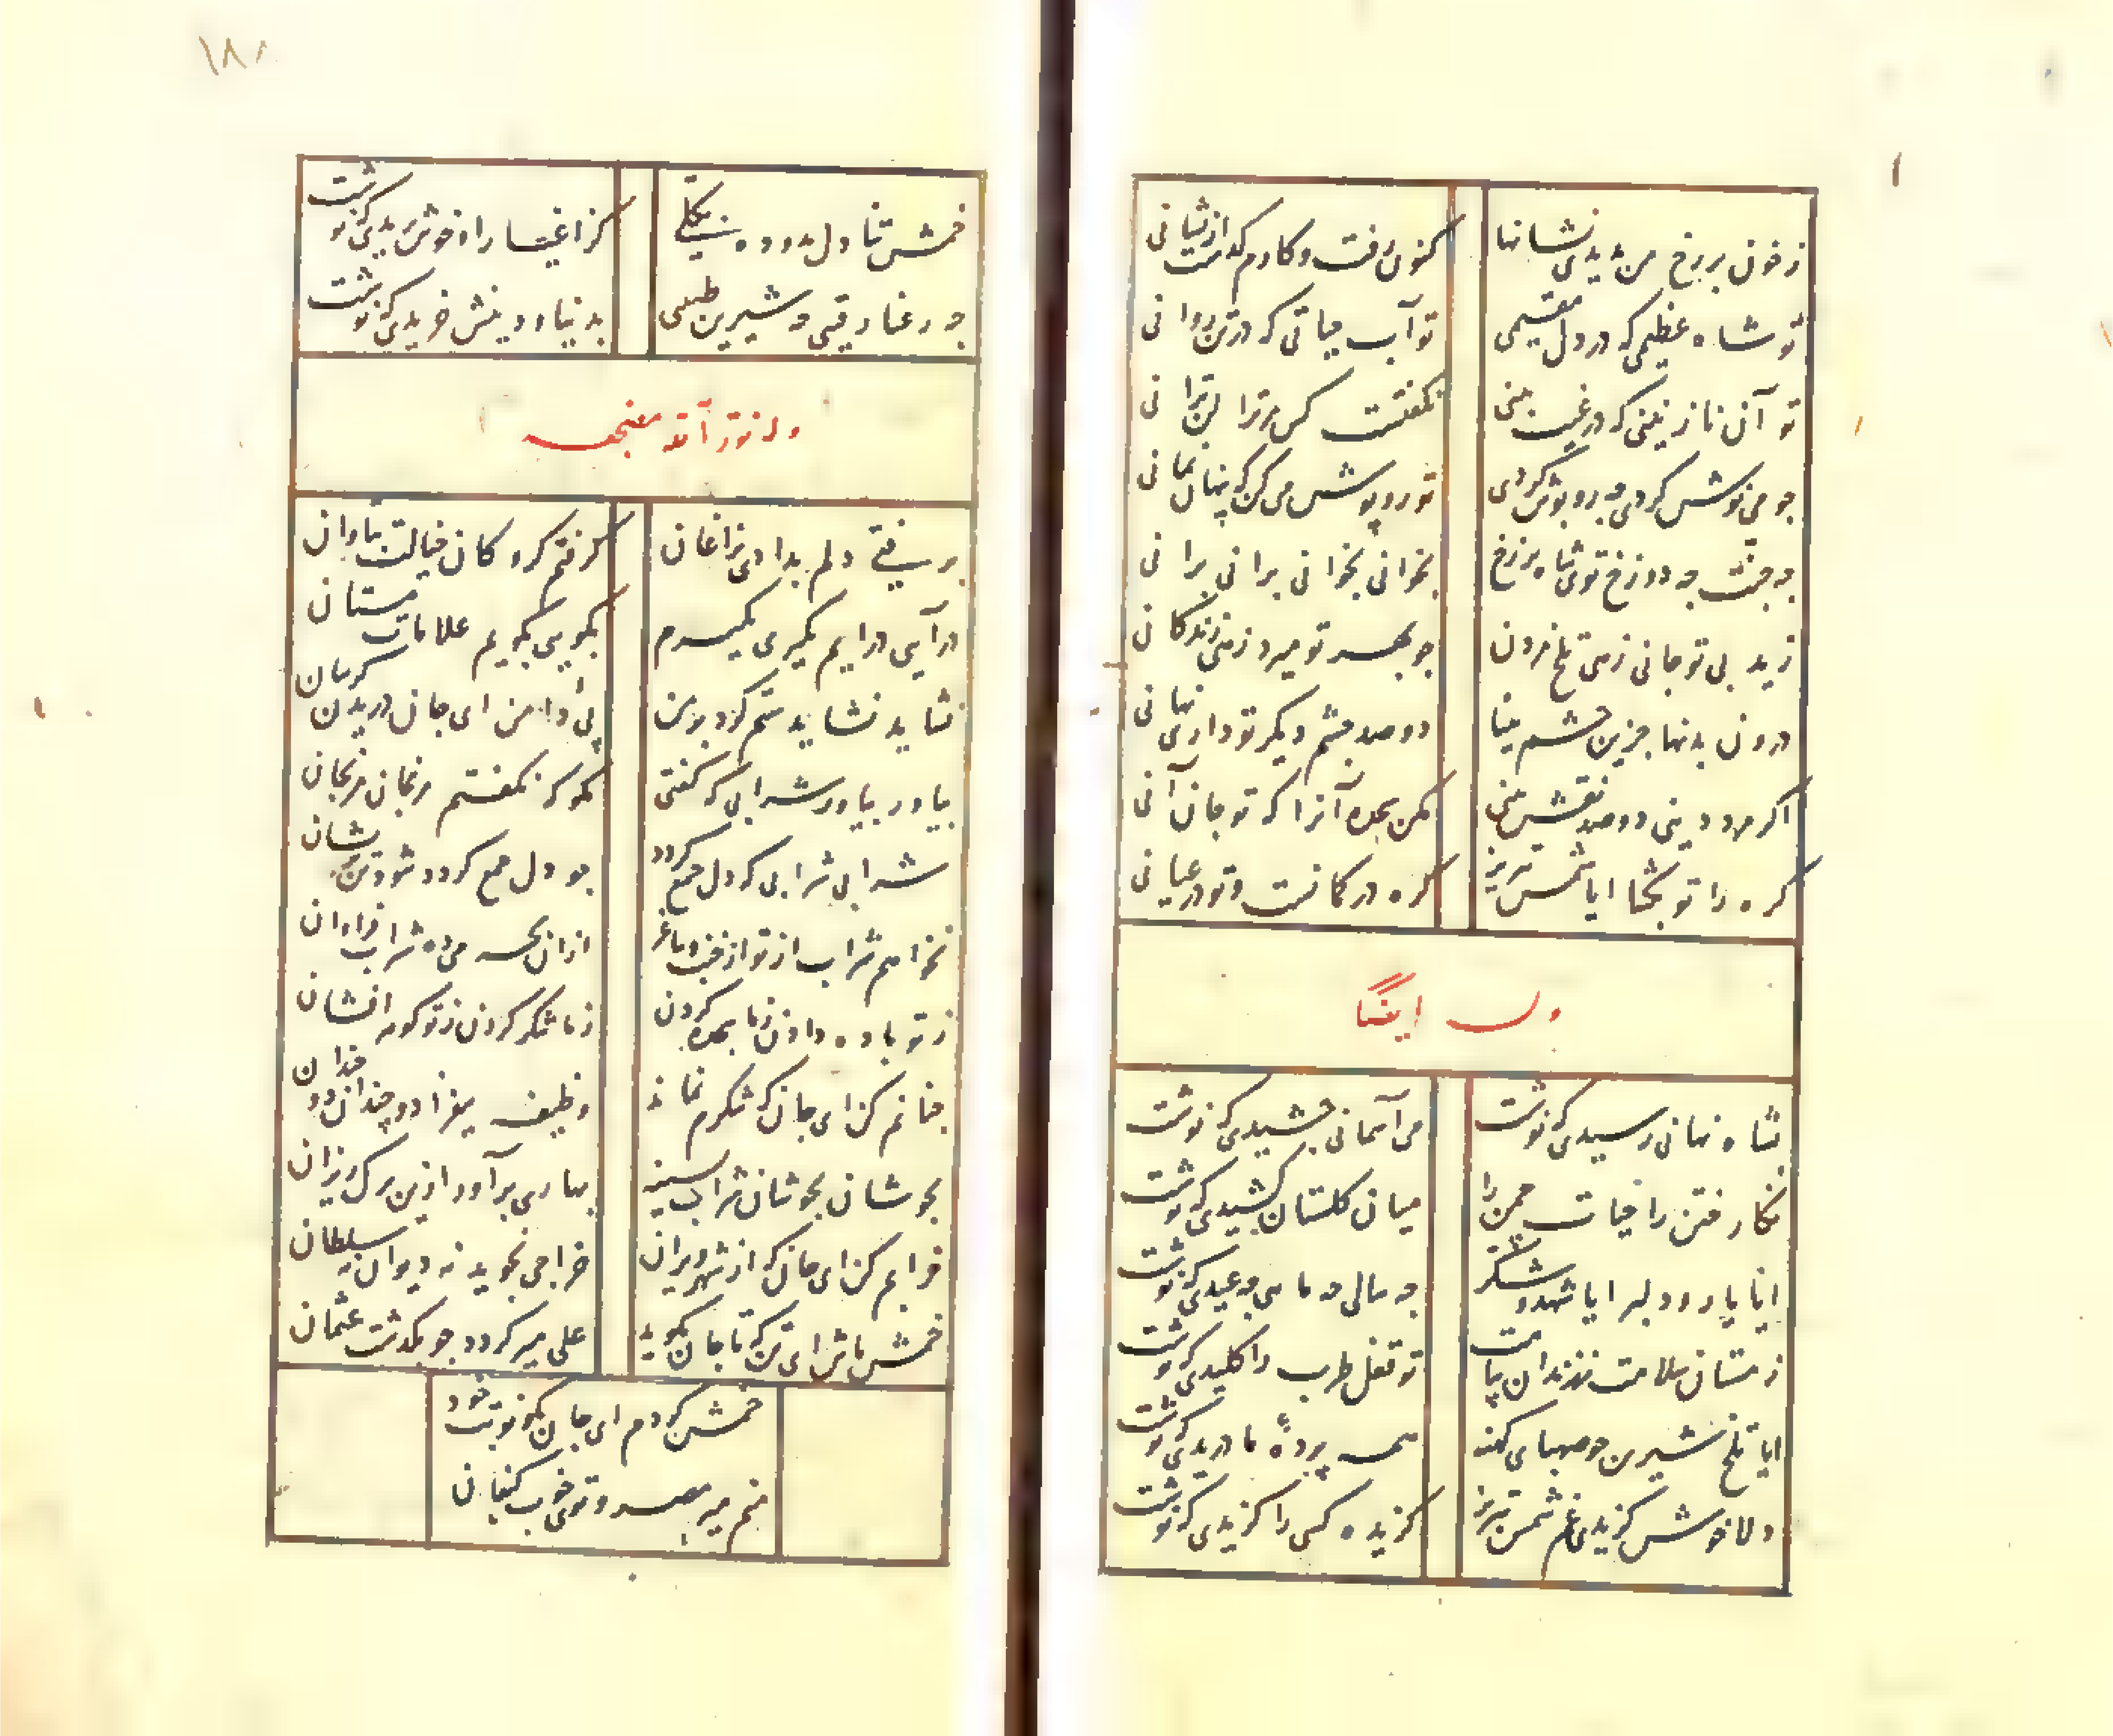 ز خون بر رخ من بدیدی نشانها
کنون رفت و کارم گذشت از نشانی
تو شاه عظیمی که در دل مقیمی
تو آب حیاتی که در تن روانی
تو آن نازنینی که در غیب بینی
نگفتست کس مر ترا لن ترانی
چو می نوش کردی چه روپوش کردی
تو روپوش می کن که پنهان نمانی
چه جنت چه دوزخ توی شاه برزخ
بخوانی بخوانی برانی برانی
زید بی تو جانی زهی تلخ مردن
چو بهر تو میرد زهی زندگانی
درون بدنها جزین چشم بینا
دو صد چشم دیگر تو داری نهانی
اگر مرد دینی دو صد نقش بینی
مکن سجده آنرا که تو جان آنی
گره را تو بگشا ایا شمس تبریز
گره در گمانست و تو در عیانی
وله ایضًا
بشاه نهانی رسیدی که نوشت
می آسمانی چشیدی که نوشت
نگار ختن را حیات چمن را
میان گلستان کشیدی که نوشت
ایا یار و دلبر ایا شهد و شکر
چه مالی چه ماهی چه عیدی که نوشت
ز مستان سلامت ز رندان پیامت
تو قفل طرب را کلیدی که نوشت
ایا تلخ شیرین چو صهبای کهنه
همه پرده ما دریدی که نوشت
دلا خوش گزیدی غم شمس تبریز
گزیده کسی را گزیدی که نوشت
۱۸۸
خمش تا دل
کز اغیار را وخوش بدیدی که نوشت
چه رعنا رقیبی چه شیرین طبیبی
بدنیا و دینش خریدی که نوشت
وله نور الله مضجعه
برفتی دلم بدادی بزاغان
گرفتم گرو کان خیالت بتاوان
درآیی درآیم بگیری بگیرم
بگویی بگویم علامات مستان
نشاید نشاید ستم کرد بر من
پی دامن ای جان دریدن گریبان
بیاور بیاور شرابی که گفتی
مگو که نگفتم مرنجان مرنجان
شرابی شرابی که دل جمع گردد
چو دل جمع گردد شود تن پریشان
نخواهم شراب از تو از خنب و ساغر
از ان بحر می ده شراب فراوان
ز تو باده دادن ز ما سجده کردن
ز ما شکر کردن ز تو گوهر افشان
چنانم کن ای جان که شکرم نماند
وظیفه بیفزا دو چندان دو چندان
بجوشان بجوشان شراب سینه
بهاری برآور ازین برگ ریزان
خرابم کن ای جان که از شهر ویران
خراجی نجوید نه دیوان نه سلطان
خمش باش ای تن که تا جان بگوید
علی میر گردد چو بگذشت عثمان
خمش کردم ای جان بگو نوبت خود
منم میر مصر و توی خوب کنعان